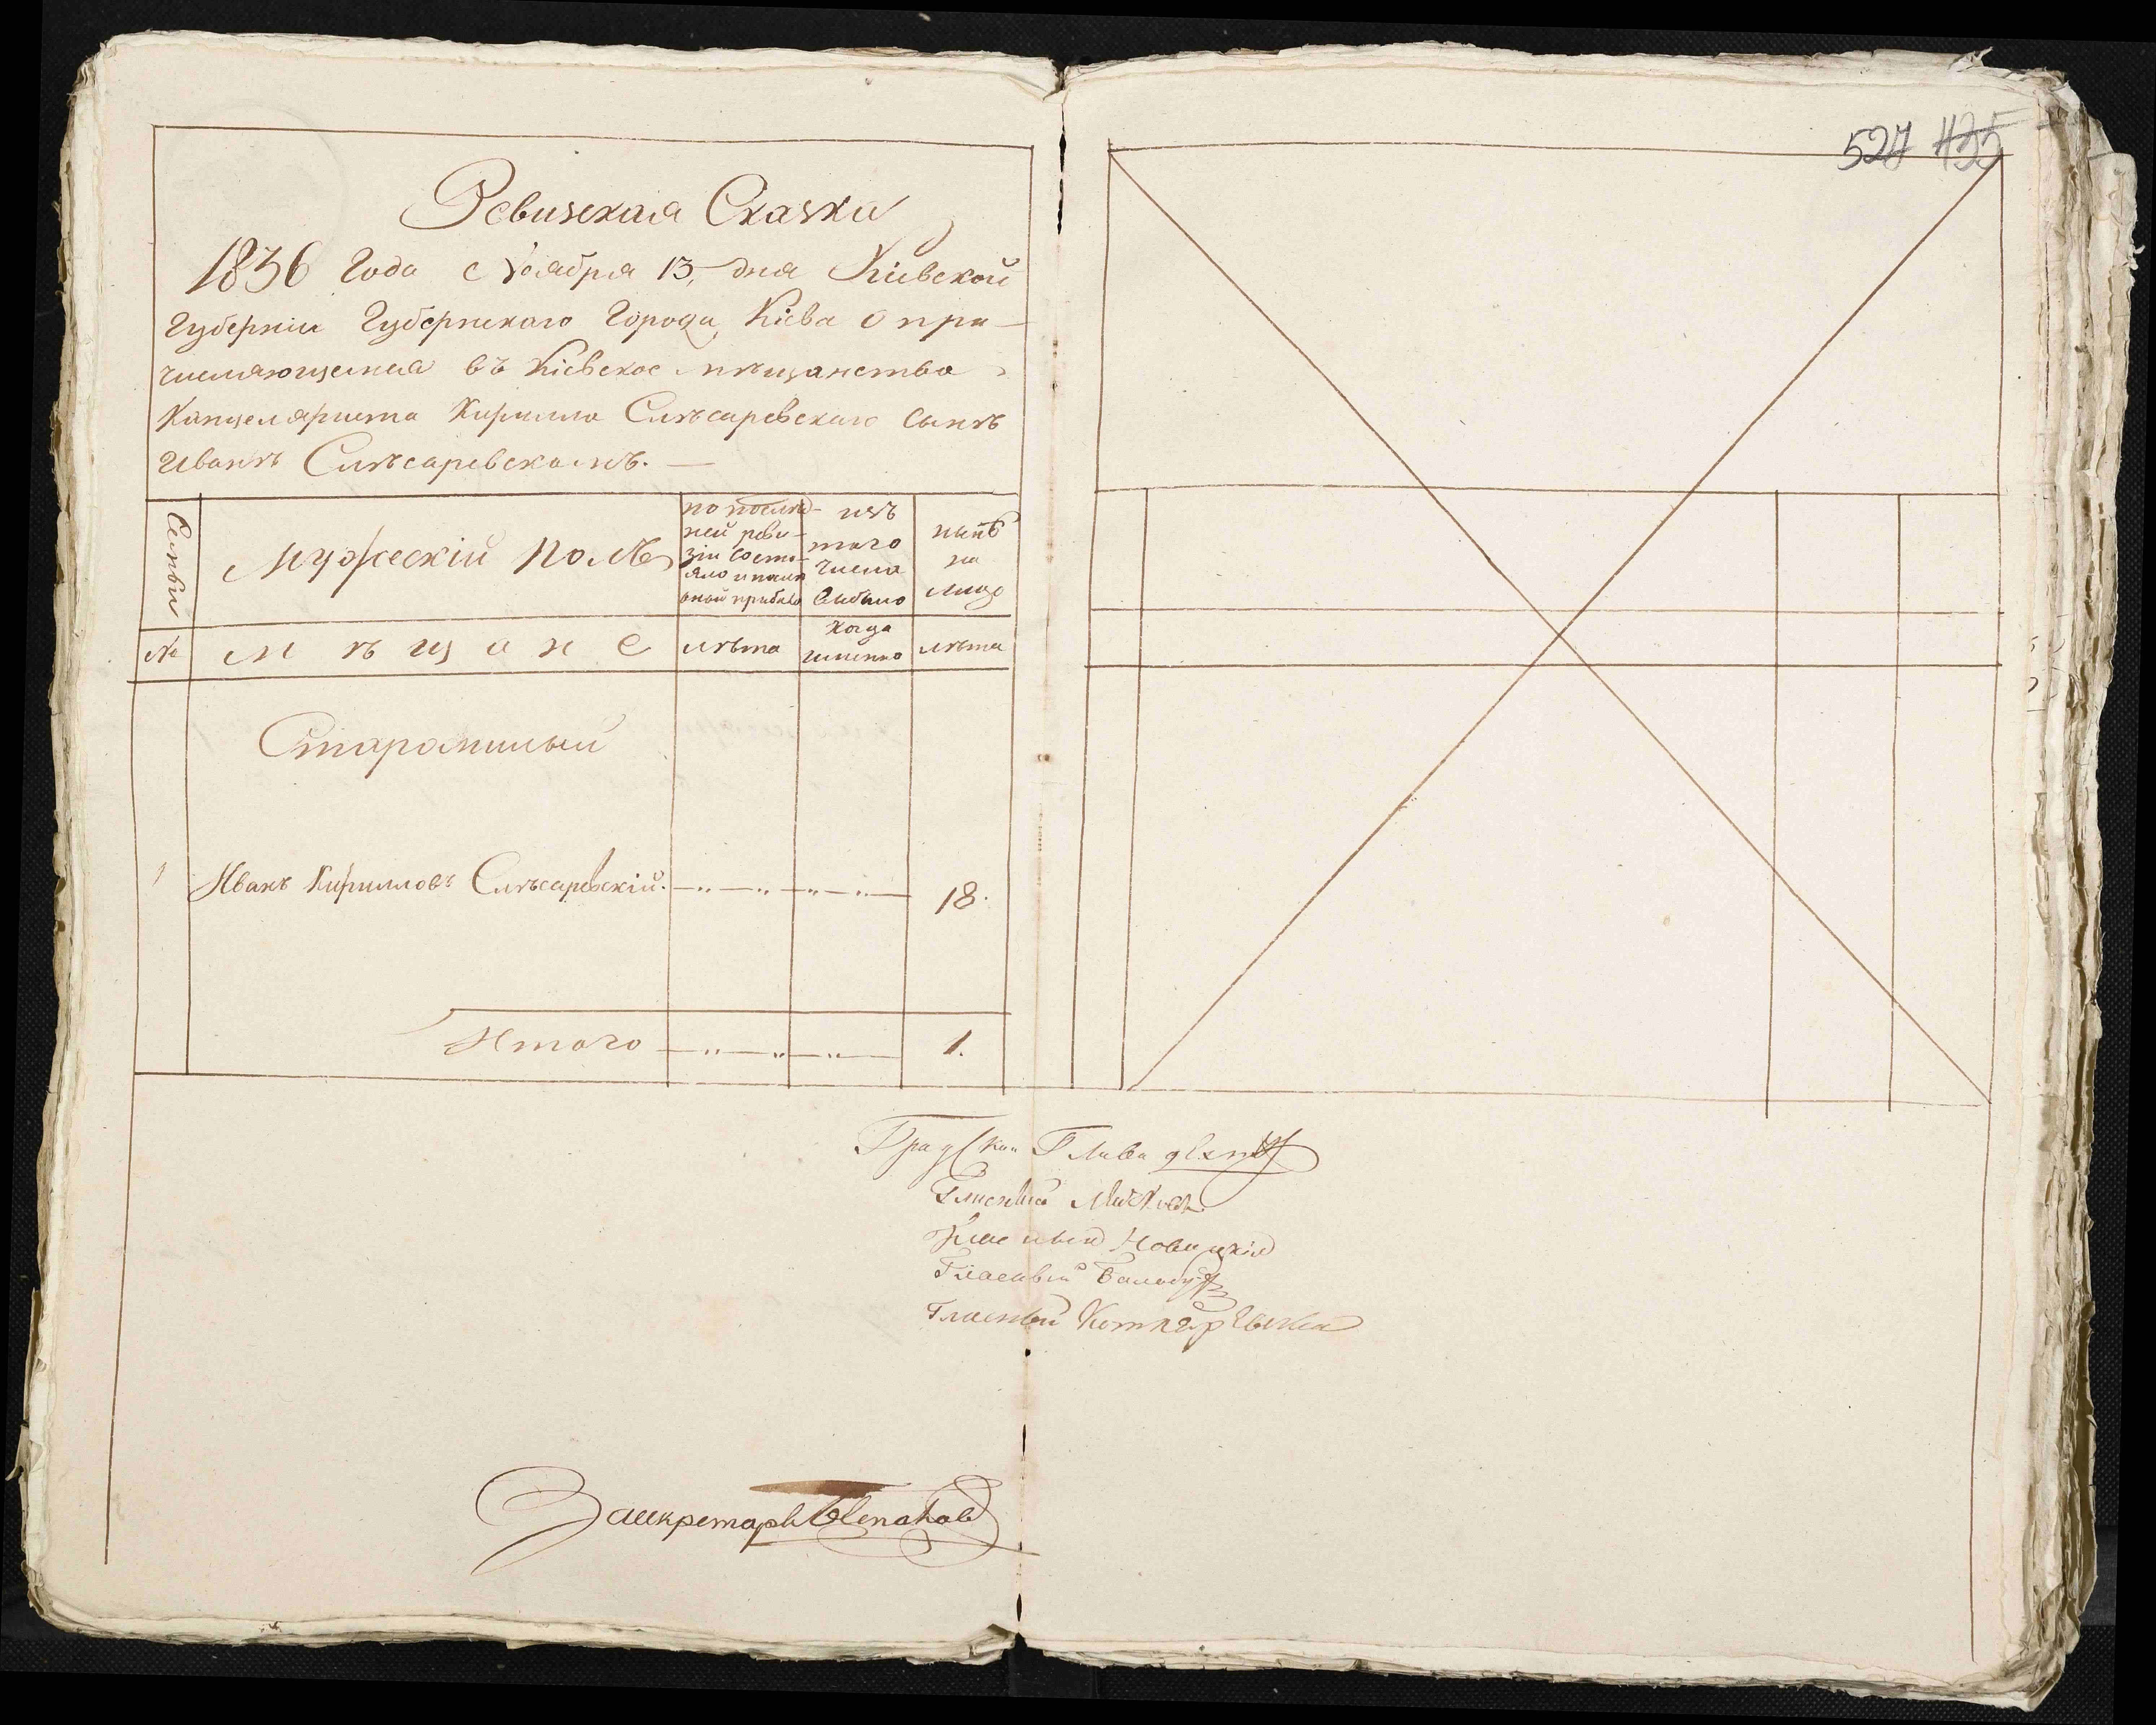 527 435
Ревизская Сказка
1836 Года Ноября 13, дня Кіевской
Губерніи Губернскаго Города Кіева О при-
числяющемся въ Кіевское мѣщанство
Канцеляриста Кирилла Слѣсаревскаго сынѣ
Иванѣ Слѣсаревскомъ. —
Семьи
Мужескій Полъ
по послѣд-
ней реви-
зіи состо-
яло и послѣ
оной прибыло
изъ
того
числа
выбыло
нынѣ
на
лицо
№
Мѣщане
лѣта
Когда
именно
лѣта
1
Иванъ Кирилловъ Слѣсаревскій.
18.
Итого
1.
Градской Глава
Гласный
Гласный Новицкій
Гласный
Гласный
За секретаря